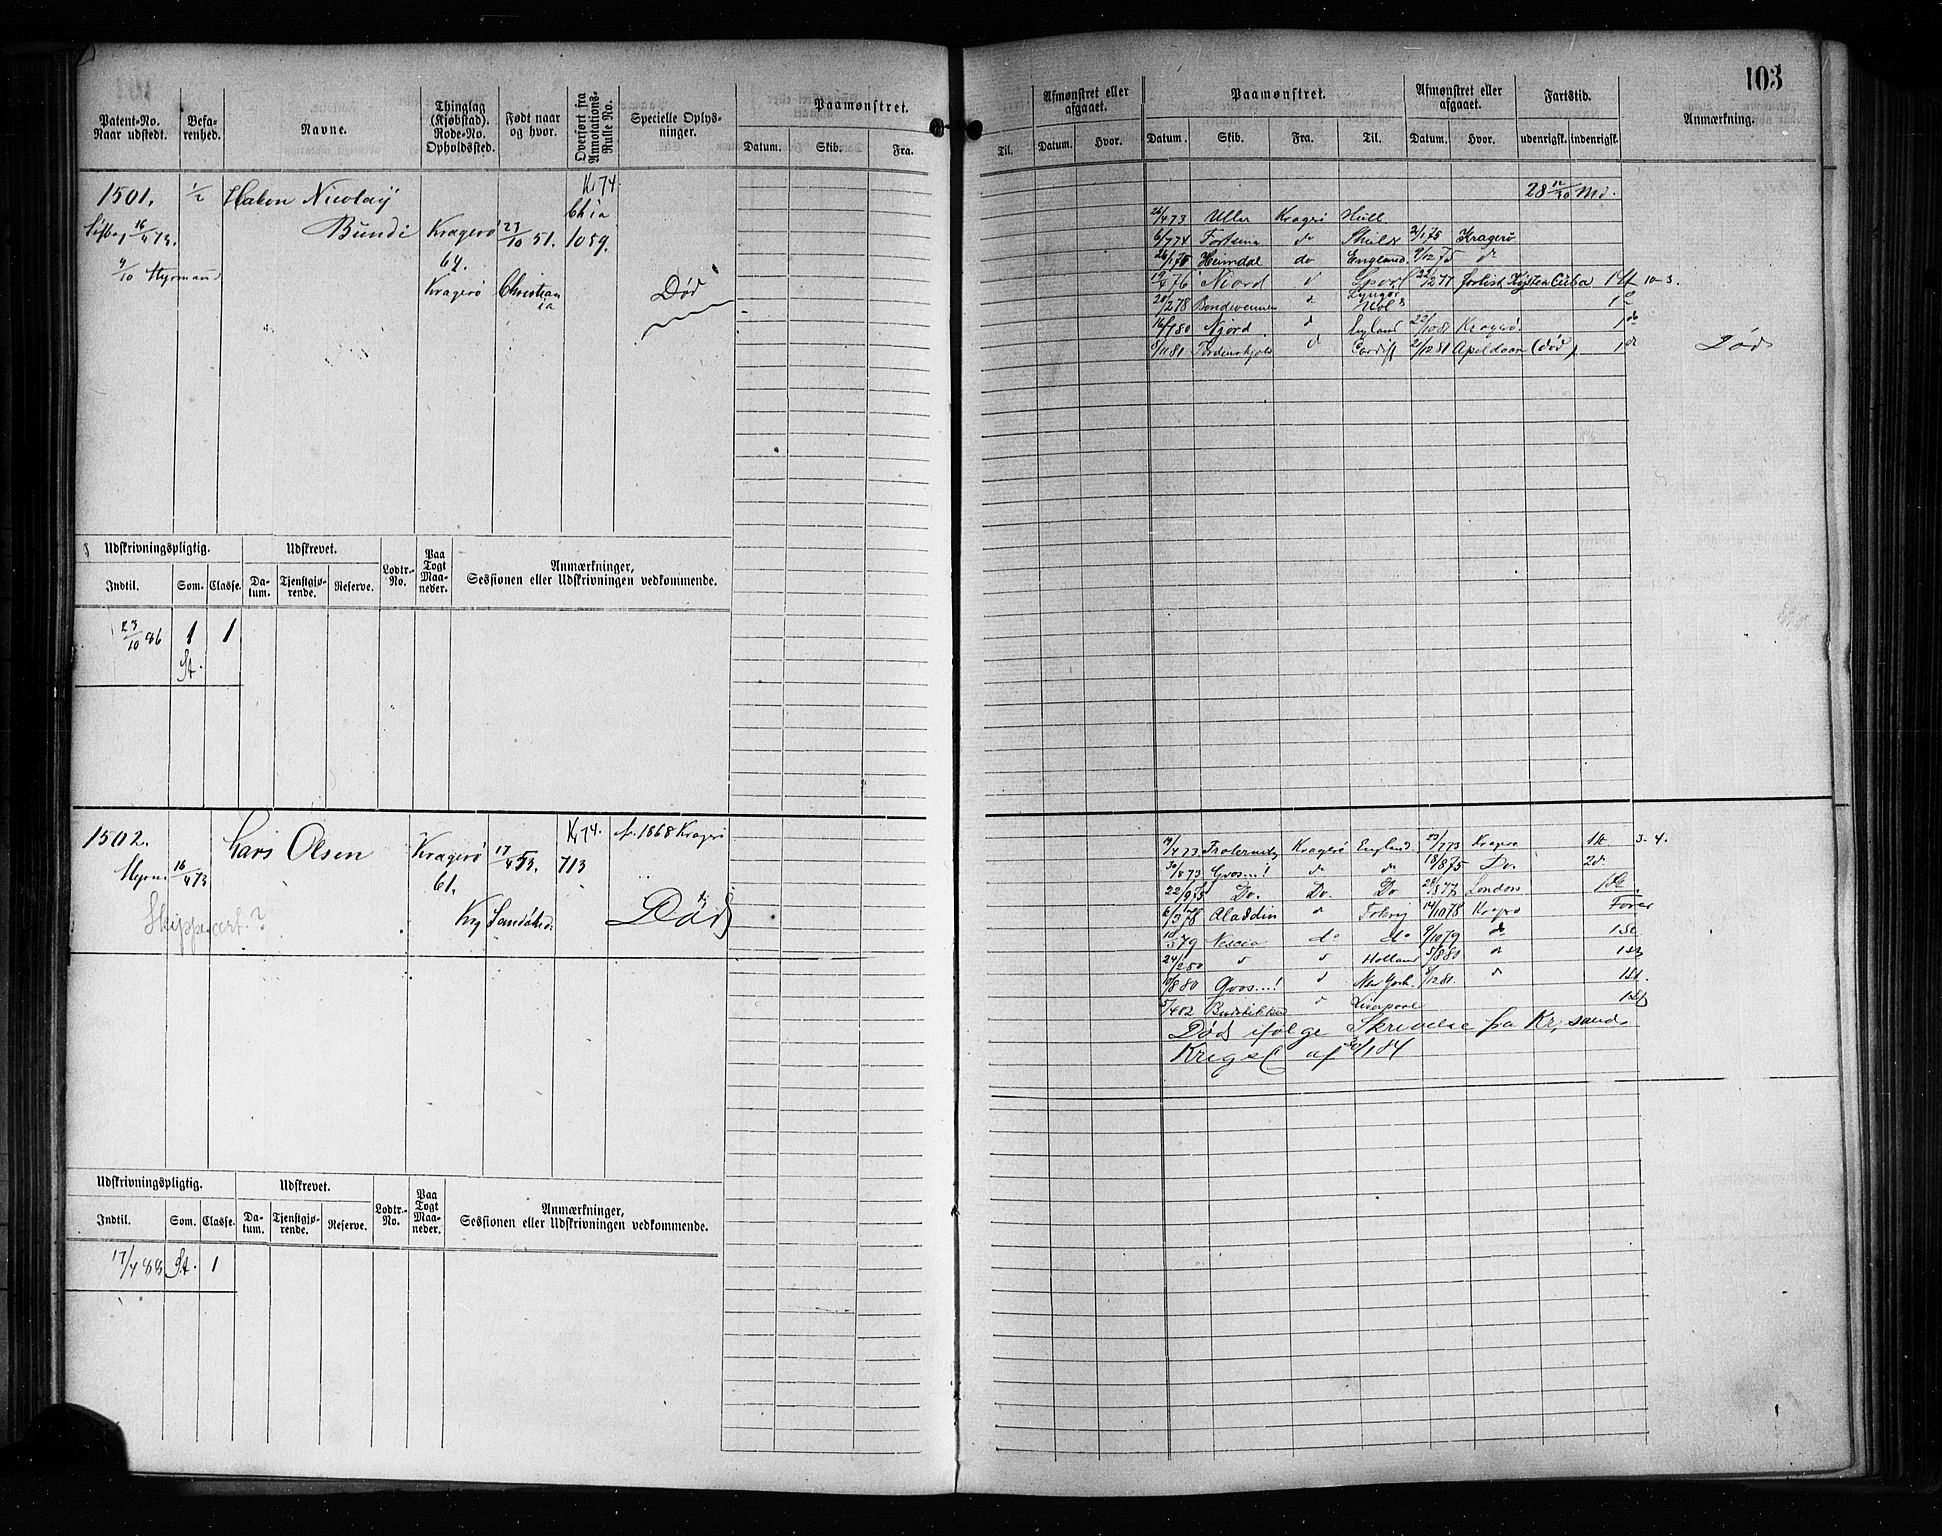 103
Patent-No. Naar udstedt.
Befarenhed.
Navne.
Thinglag (Kjøbstad). Rode-No. Opholdssted.
Født naar og hvor.
Overført fra Annotations-Rulle No.
Specielle Oplysninger.
Paamønstret.
Datum. Skib. Fra.
Til.
Afmønstret eller afgaaet.
Datum. Hvor.
Paamønstret.
Datum. Skib. Fra. Til.
Afmønstret eller afgaaet.
Datum. Hvor.
Fartstid.
udenrigsk. indenrigsk.
Anmærkning.
1501. 1/2 Haken Nicolaij Kr 74.
Bundi Kragerø 23/10 51. Chia 1059.
16/4 73.
9/10 Styrmand 64.
Kragerø Christiania Død
28 Md.
26/4 73 Uller Kragerø Hull
6/7 74 Fortuna do Shields 2/1 75 Kragerø
26/1 75 Heimdal do England. 9/12 75 do
19/4 76 Niord d 22/2 77 forlist Kysten Cuba 1 St 10-3.
20/2 78 Bondevennen d
16/7 80 Njord d England 22/10 81 Kragerø. 1 do
8/11 81 d Cardiff 21/12 81 (død) 1 d Død
Udskrivningspligtig.
Indtil. Som. Classe.
Udskrevet.
Datum. Tjenstgjørende. Reserve.
Lodtr.-No.
Paa Togt Maaneder.
Anmærkninger,
Sessionen eller Udskrivningen vedkommende.
23/10 86 1 1
St.
1502. Lars Olsen Kragerø 17/4 53. Kr 74. 713 fr. 1868 Kragerø
Styrm. 16/4 73 61.
Skippercert.? Krg Sandøked. Død
19/4 73 Fraternitz Kragerø England 23/7 73 Kragerø 1 St 3-4.
30/8 73 Gvos...! d d 18/8 75 Do. 2 d.
22/9 75 Do. Do. Do 28/8 77 London 1 do
6/3 78 Aladdin d 14/10 78 Kragrø
10/3 79 Nescio do do 9/10 79 do 1 St
24/2 80 d d Holland 5/8 80 d 1 St
10/8 80 Gvos...! d New York. 8/12 81. d 1 St.
5/4 82 Budstikken d Liverpool 1 St
Død ifølge Skrivelse fra Kr.sands
Krigsc af 30/1 84
Udskrivningspligtig.
Indtil. Som. Classe.
Udskrevet.
Datum. Tjenstgjørende. Reserve.
Lodtr.-No.
Paa Togt Maaneder.
Anmærkninger,
Sessionen eller Udskrivningen vedkommende.
17/4 88 St. 1